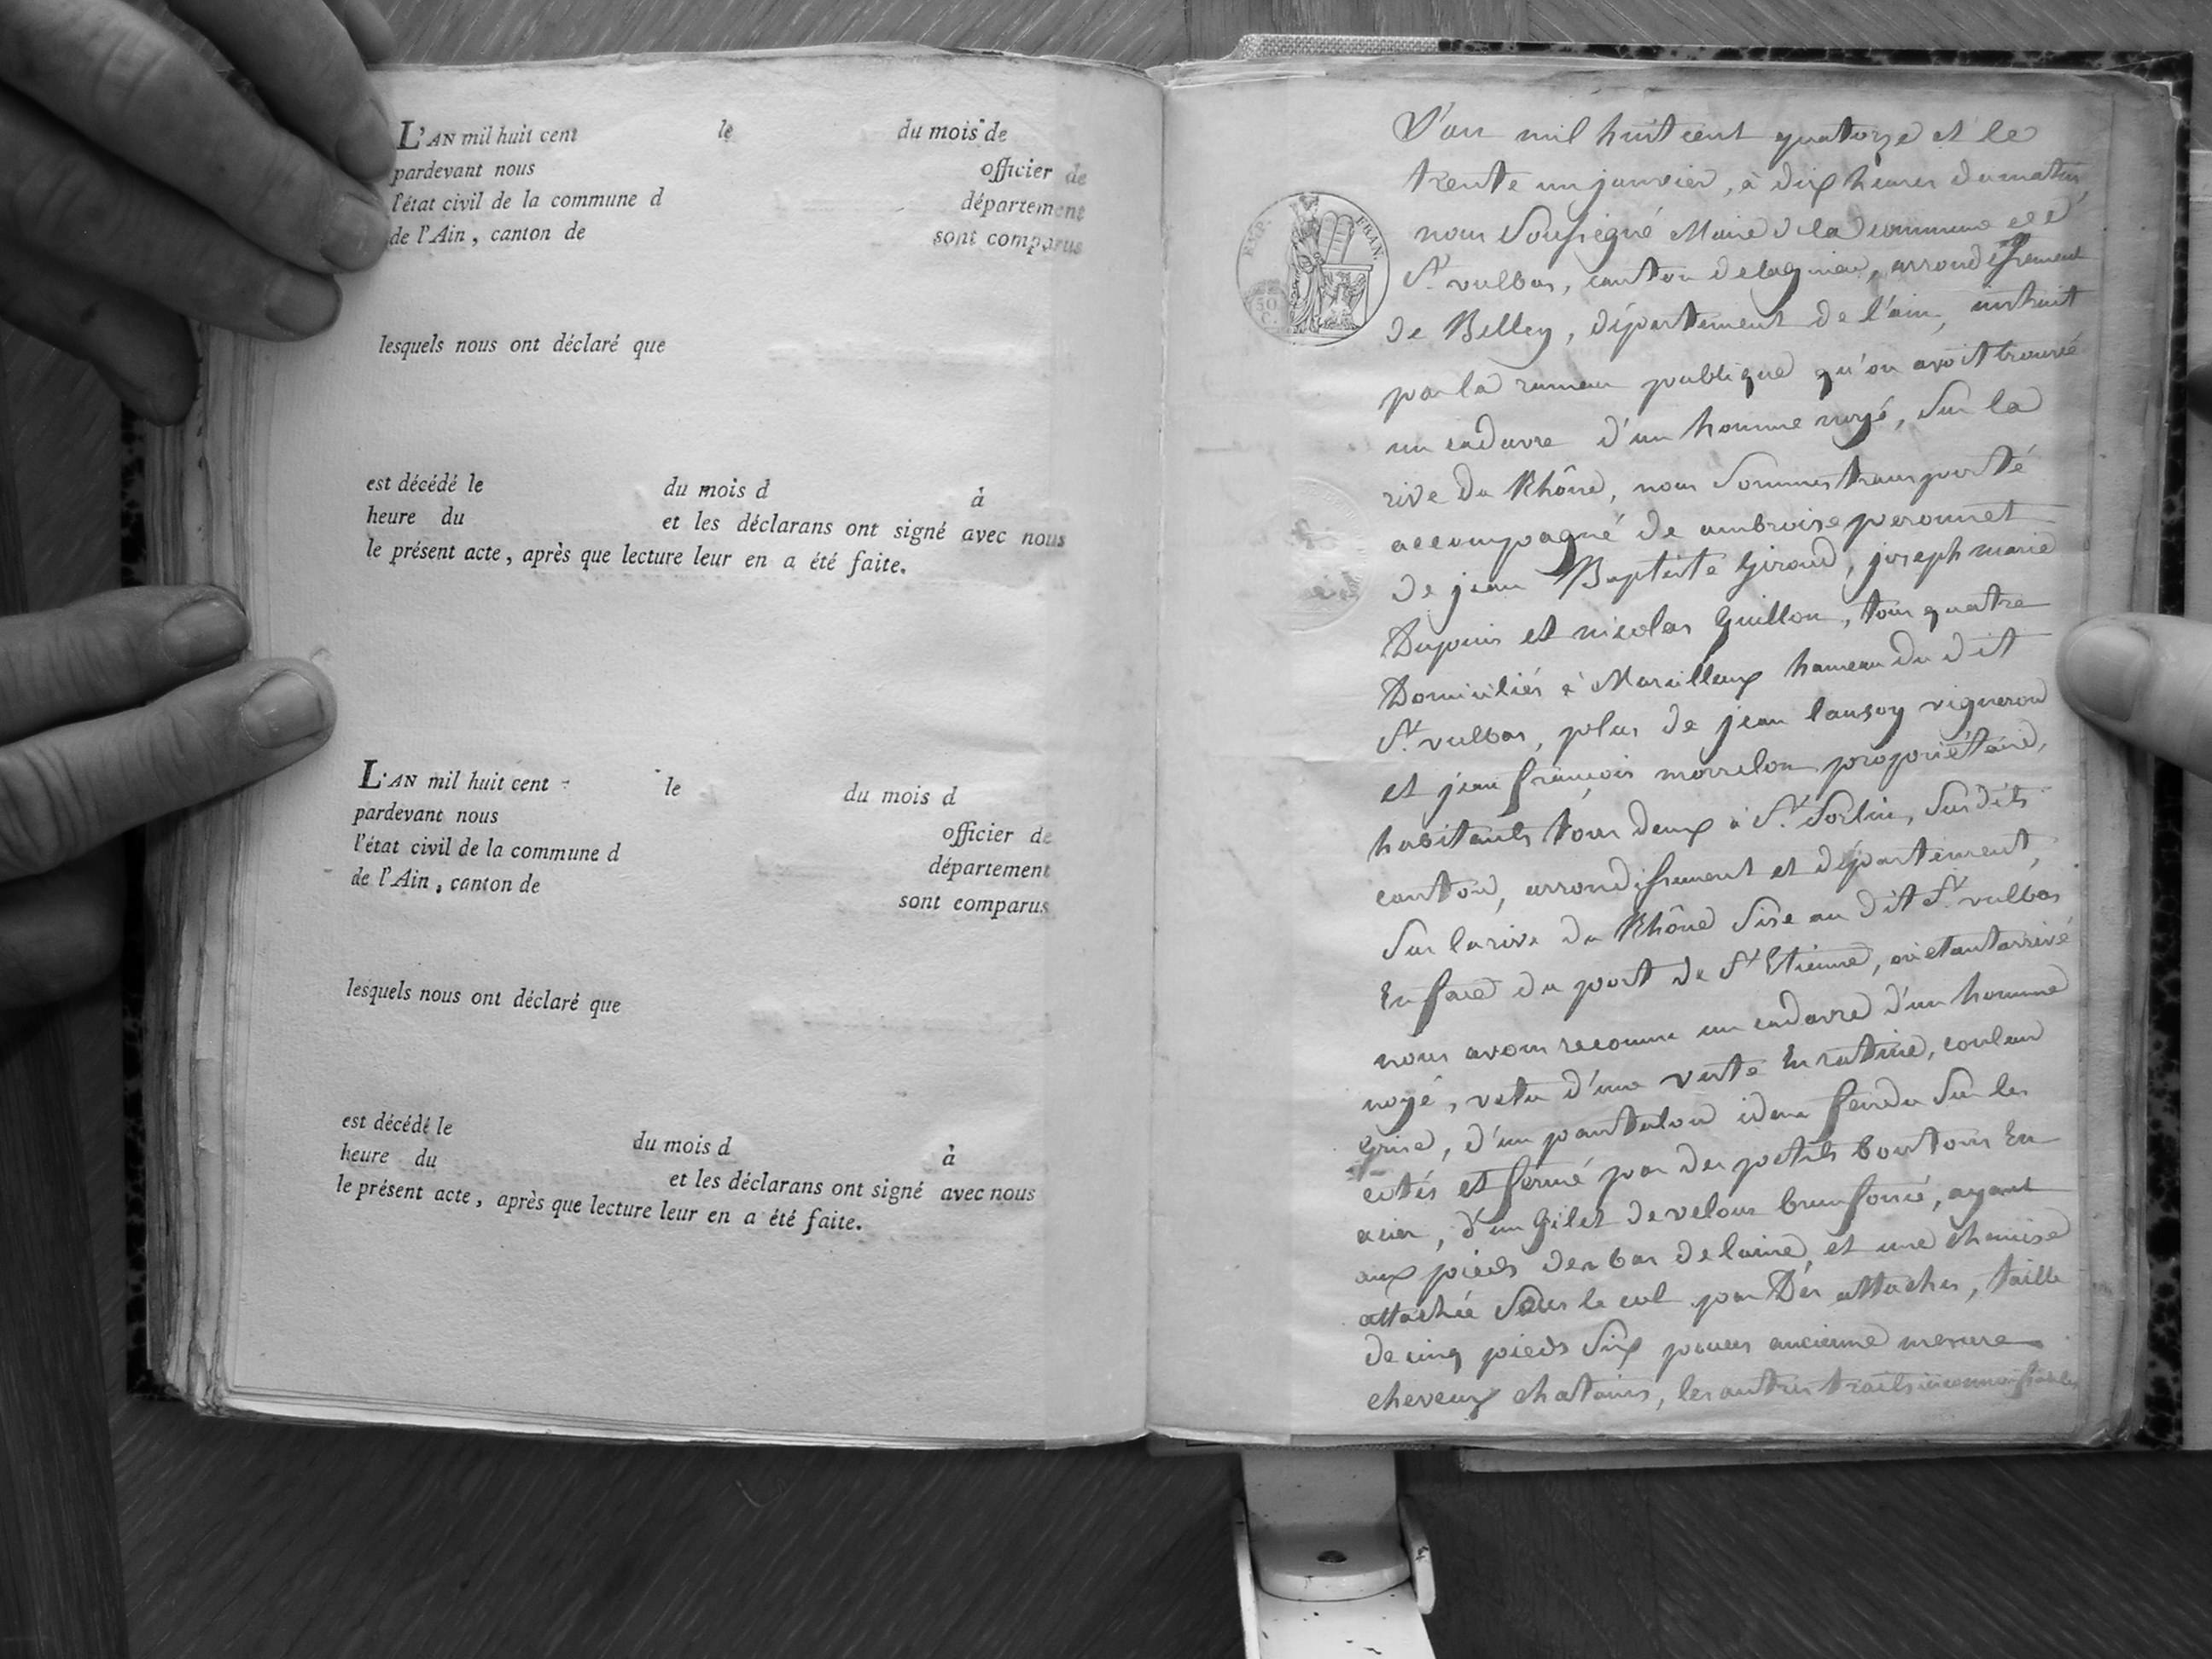 L'AN mil huit cent le du mois de
pardevant nous officier de
l'état civil de la commune d département
de l'Ain, canton de sont comparus
lesquels nous ont déclaré que
est décédé le du mois d à
heure du et les déclarans ont signé avec nous
le présent acte, après que lecture leur en a été faite.
L'AN mil huit cent le du mois d
pardevant nous officier de
l'état civil de la commune d département
de l'Ain, canton de sont comparus
lesquels nous ont déclaré que
est décédé le du mois d à
heure du et les déclarans ont signé avec nous
le présent acte, après que lecture leur en a été faite.
EXP. FRAN.
50 C.
L'an mil huit cent quatorze et le
trente un janvier, à dix heures du matin,
nous Soussigné Maire de la commune de
St. vulbas, canton de lagnieu, arrondissement
de Belley, département de l'ain, instruit
par la rumeur publique qu'on avoit trouvé
un cadavre d'un homme noyé, Sur la
rive du Rhône, nous Sommes transporté
accompagné de ambroise peronnet
de jean Baptiste Giroud, joseph marie
Dupuis et nicolas Guillon, tous quatre
Domiciliés à Marcilleux hameau du dit
St. vulbas, plus de jean lansoy vigneron
et jean françois morrelon propriétaire,
habitants tous deux à St. Sorlin, Susdits
canton, arrondissement et département,
Sur la rive du Rhône Sise au dit St. vulbas
En face du port de St Etienne, où étant arrivé
nous avons reconnu un cadavre d'un homme
noyé, vetu d'une veste En ratine, couleur
Grise, d'un pantalon idem fendu Sur les
cotés et fermé par des petits boutons En
acier, d'un Gilet de velour brun foncé, ayant
aux pieds des bas de laine, et une chemise
attachée Sous le col par Des attaches, taille
de cinq pieds Six pouces ancienne mesure
cheveux chatains, les autres traits inconnoissables